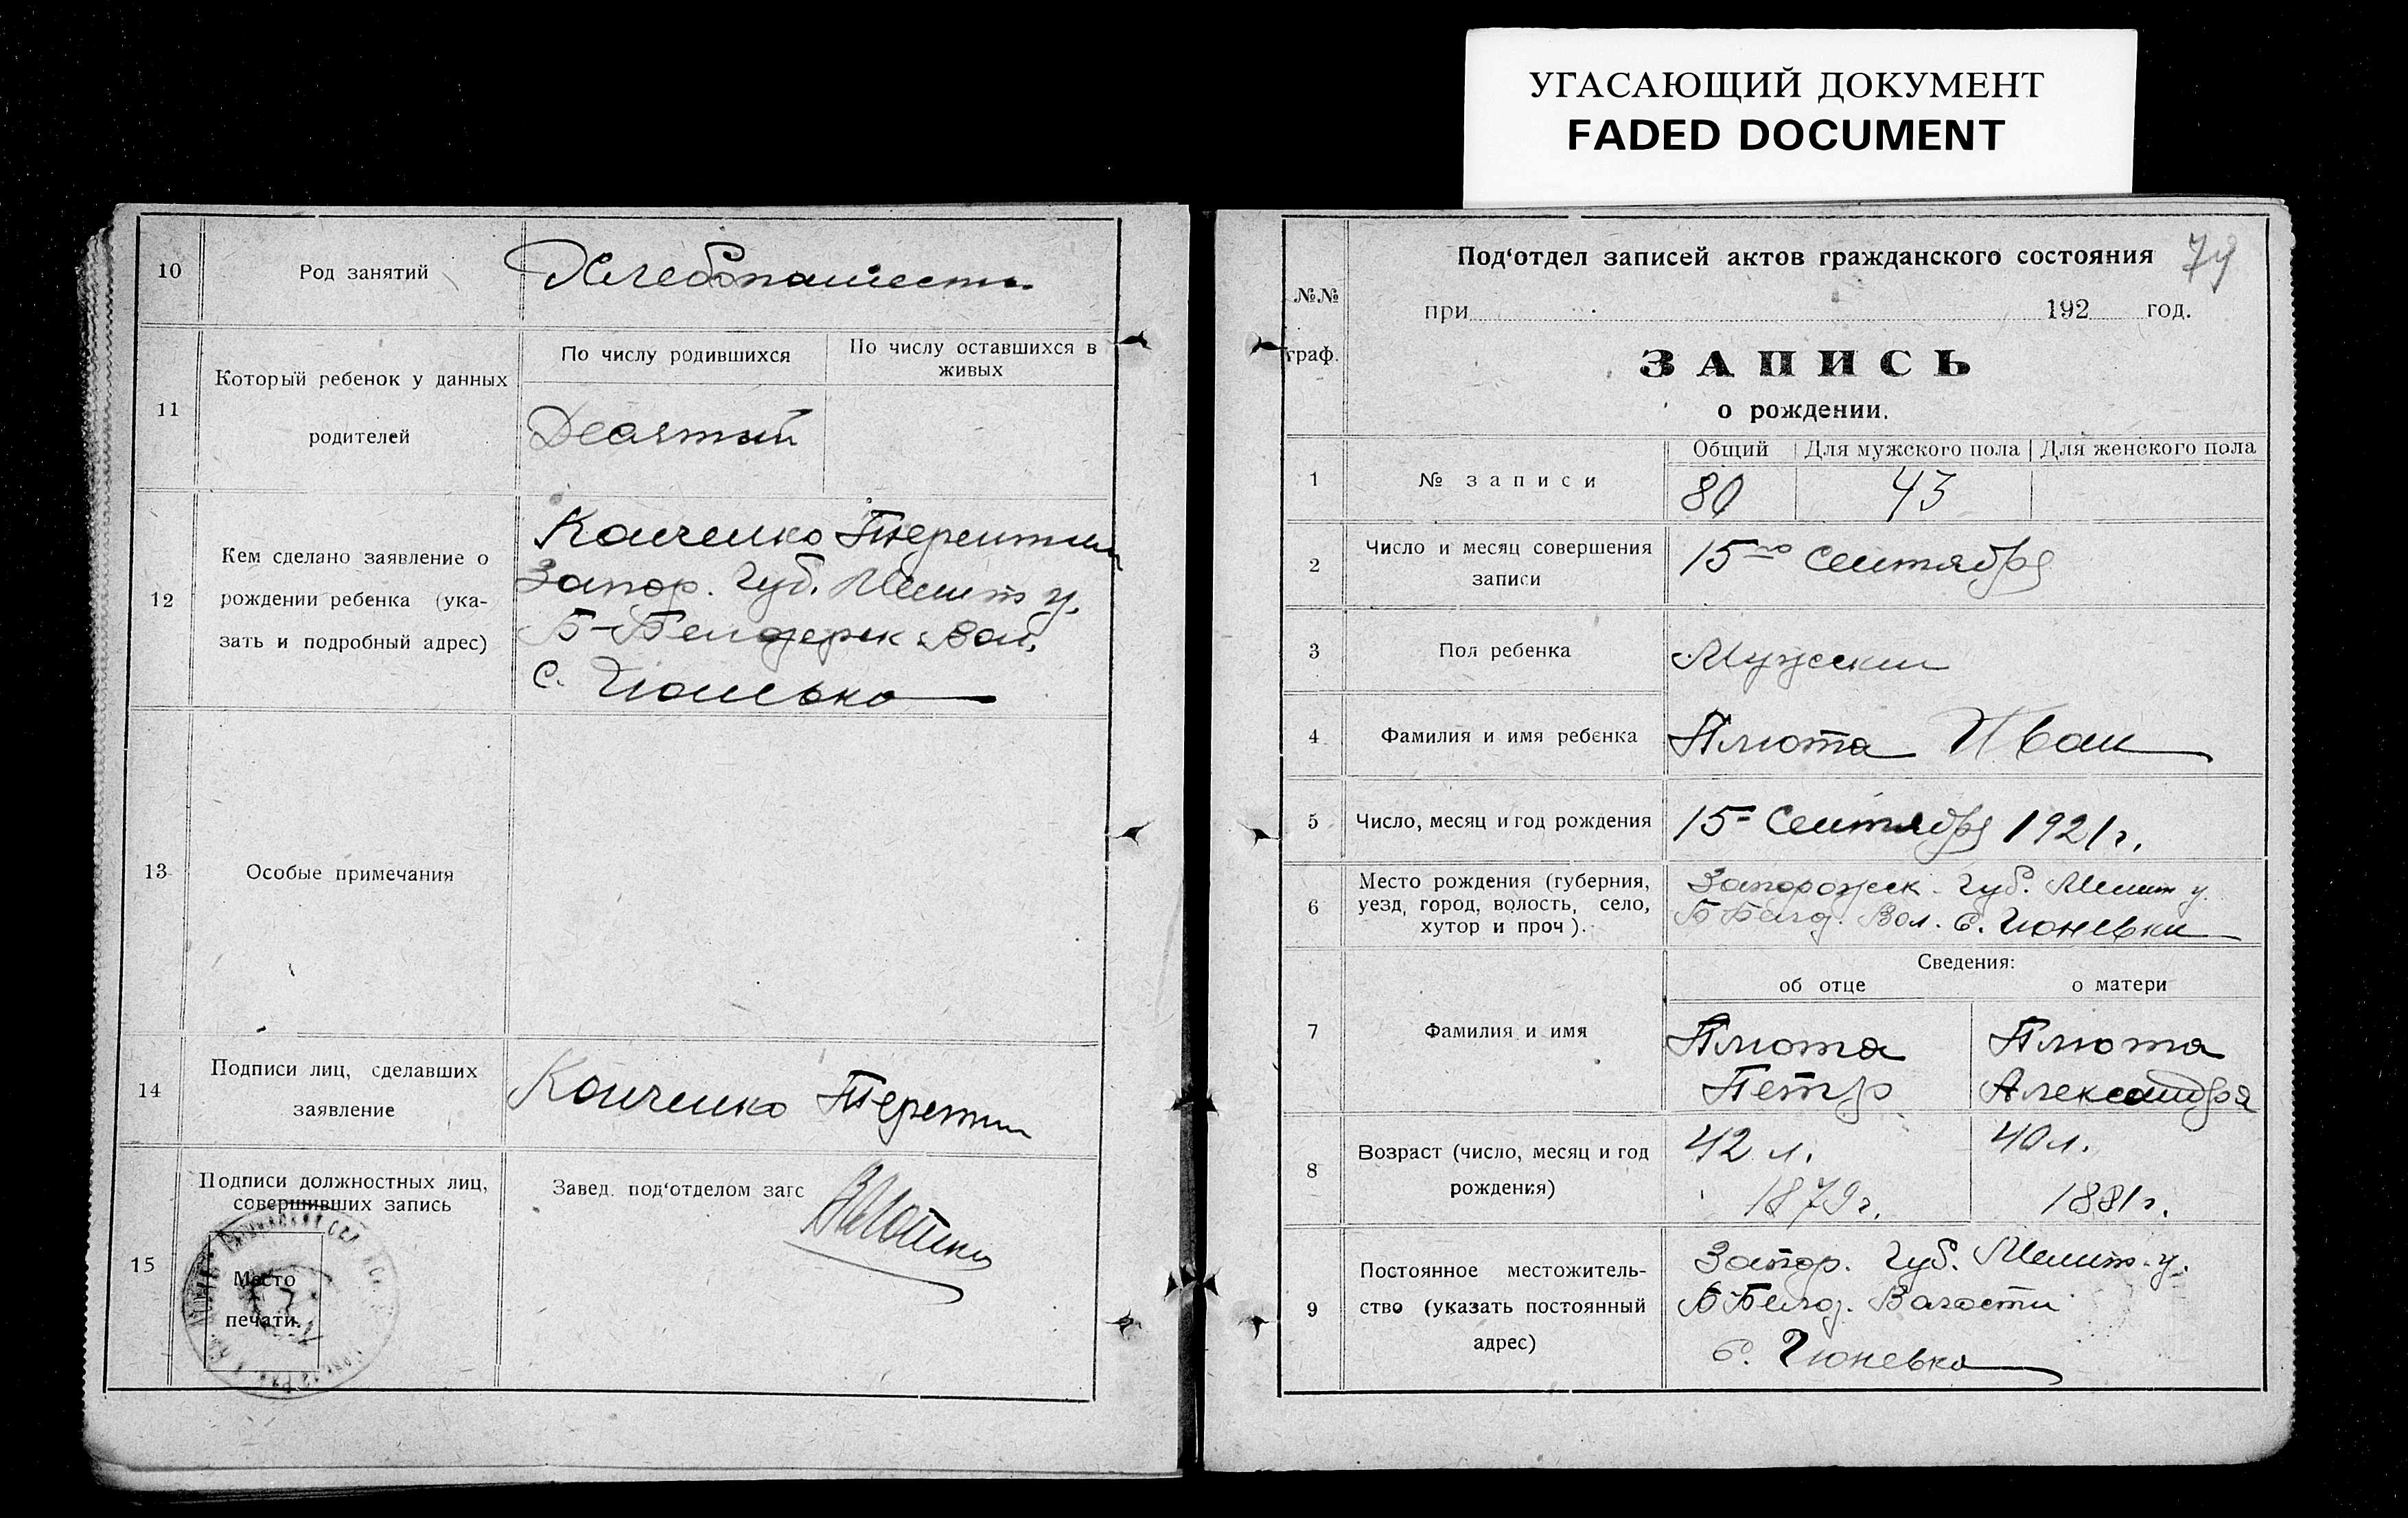 УГАСАЮЩИЙ ДОКУМЕНТ
FADED DOCUMENT
10
Род занятий
Хлебопашест.
11
Который ребенок у данных
родителей
По числу родившихся
По числу оставшихся в
живых
Десятый
12
Кем сделано заявление о
рождении ребенка (ука-
зать и подробный адрес)
Конченко Терентий
Запор. Губ. Мелит у.
Б-Белозерск Вол.
с. Гюневка
13
Особые примечания
14
Подписи лиц, сделавших
заявление
Конченко Терентий
15
Подписи должностных лиц,
совершивших запись
Место
печати.
Завед. под'отделом загс
79
№№
граф.
Под'отдел записей актов гражданского состояния
при 192 год.
ЗАПИСЬ
о рождении.
1
№ записи
Общий
Для мужского пола
Для женского пола
80
43
2
Число и месяц совершения
записи
15го Сентября
3
Пол ребенка
Мужский
4
Фамилия и имя ребенка
Плюта Иван
5
Число, месяц и год рождения
15 Сентября 1921 г.
6
Место рождения (губерния,
уезд, город, волость, село,
хутор и проч).
Запорожск. Губ. Мелит у.
Б Белоз. Вол. с. Гюневки
Сведения:
об отце
о матери
7
Фамилия и имя
Плюта
Петр
Плюта
Александра
8
Возраст (число, месяц и год
рождения)
42 л.
1879 г.
40 л.
1881 г.
9
Постоянное местожитель-
ство (указать постоянный
адрес)
Запор. Губ. Мелит. у.
Б Белоз. Волости
с. Гюневка